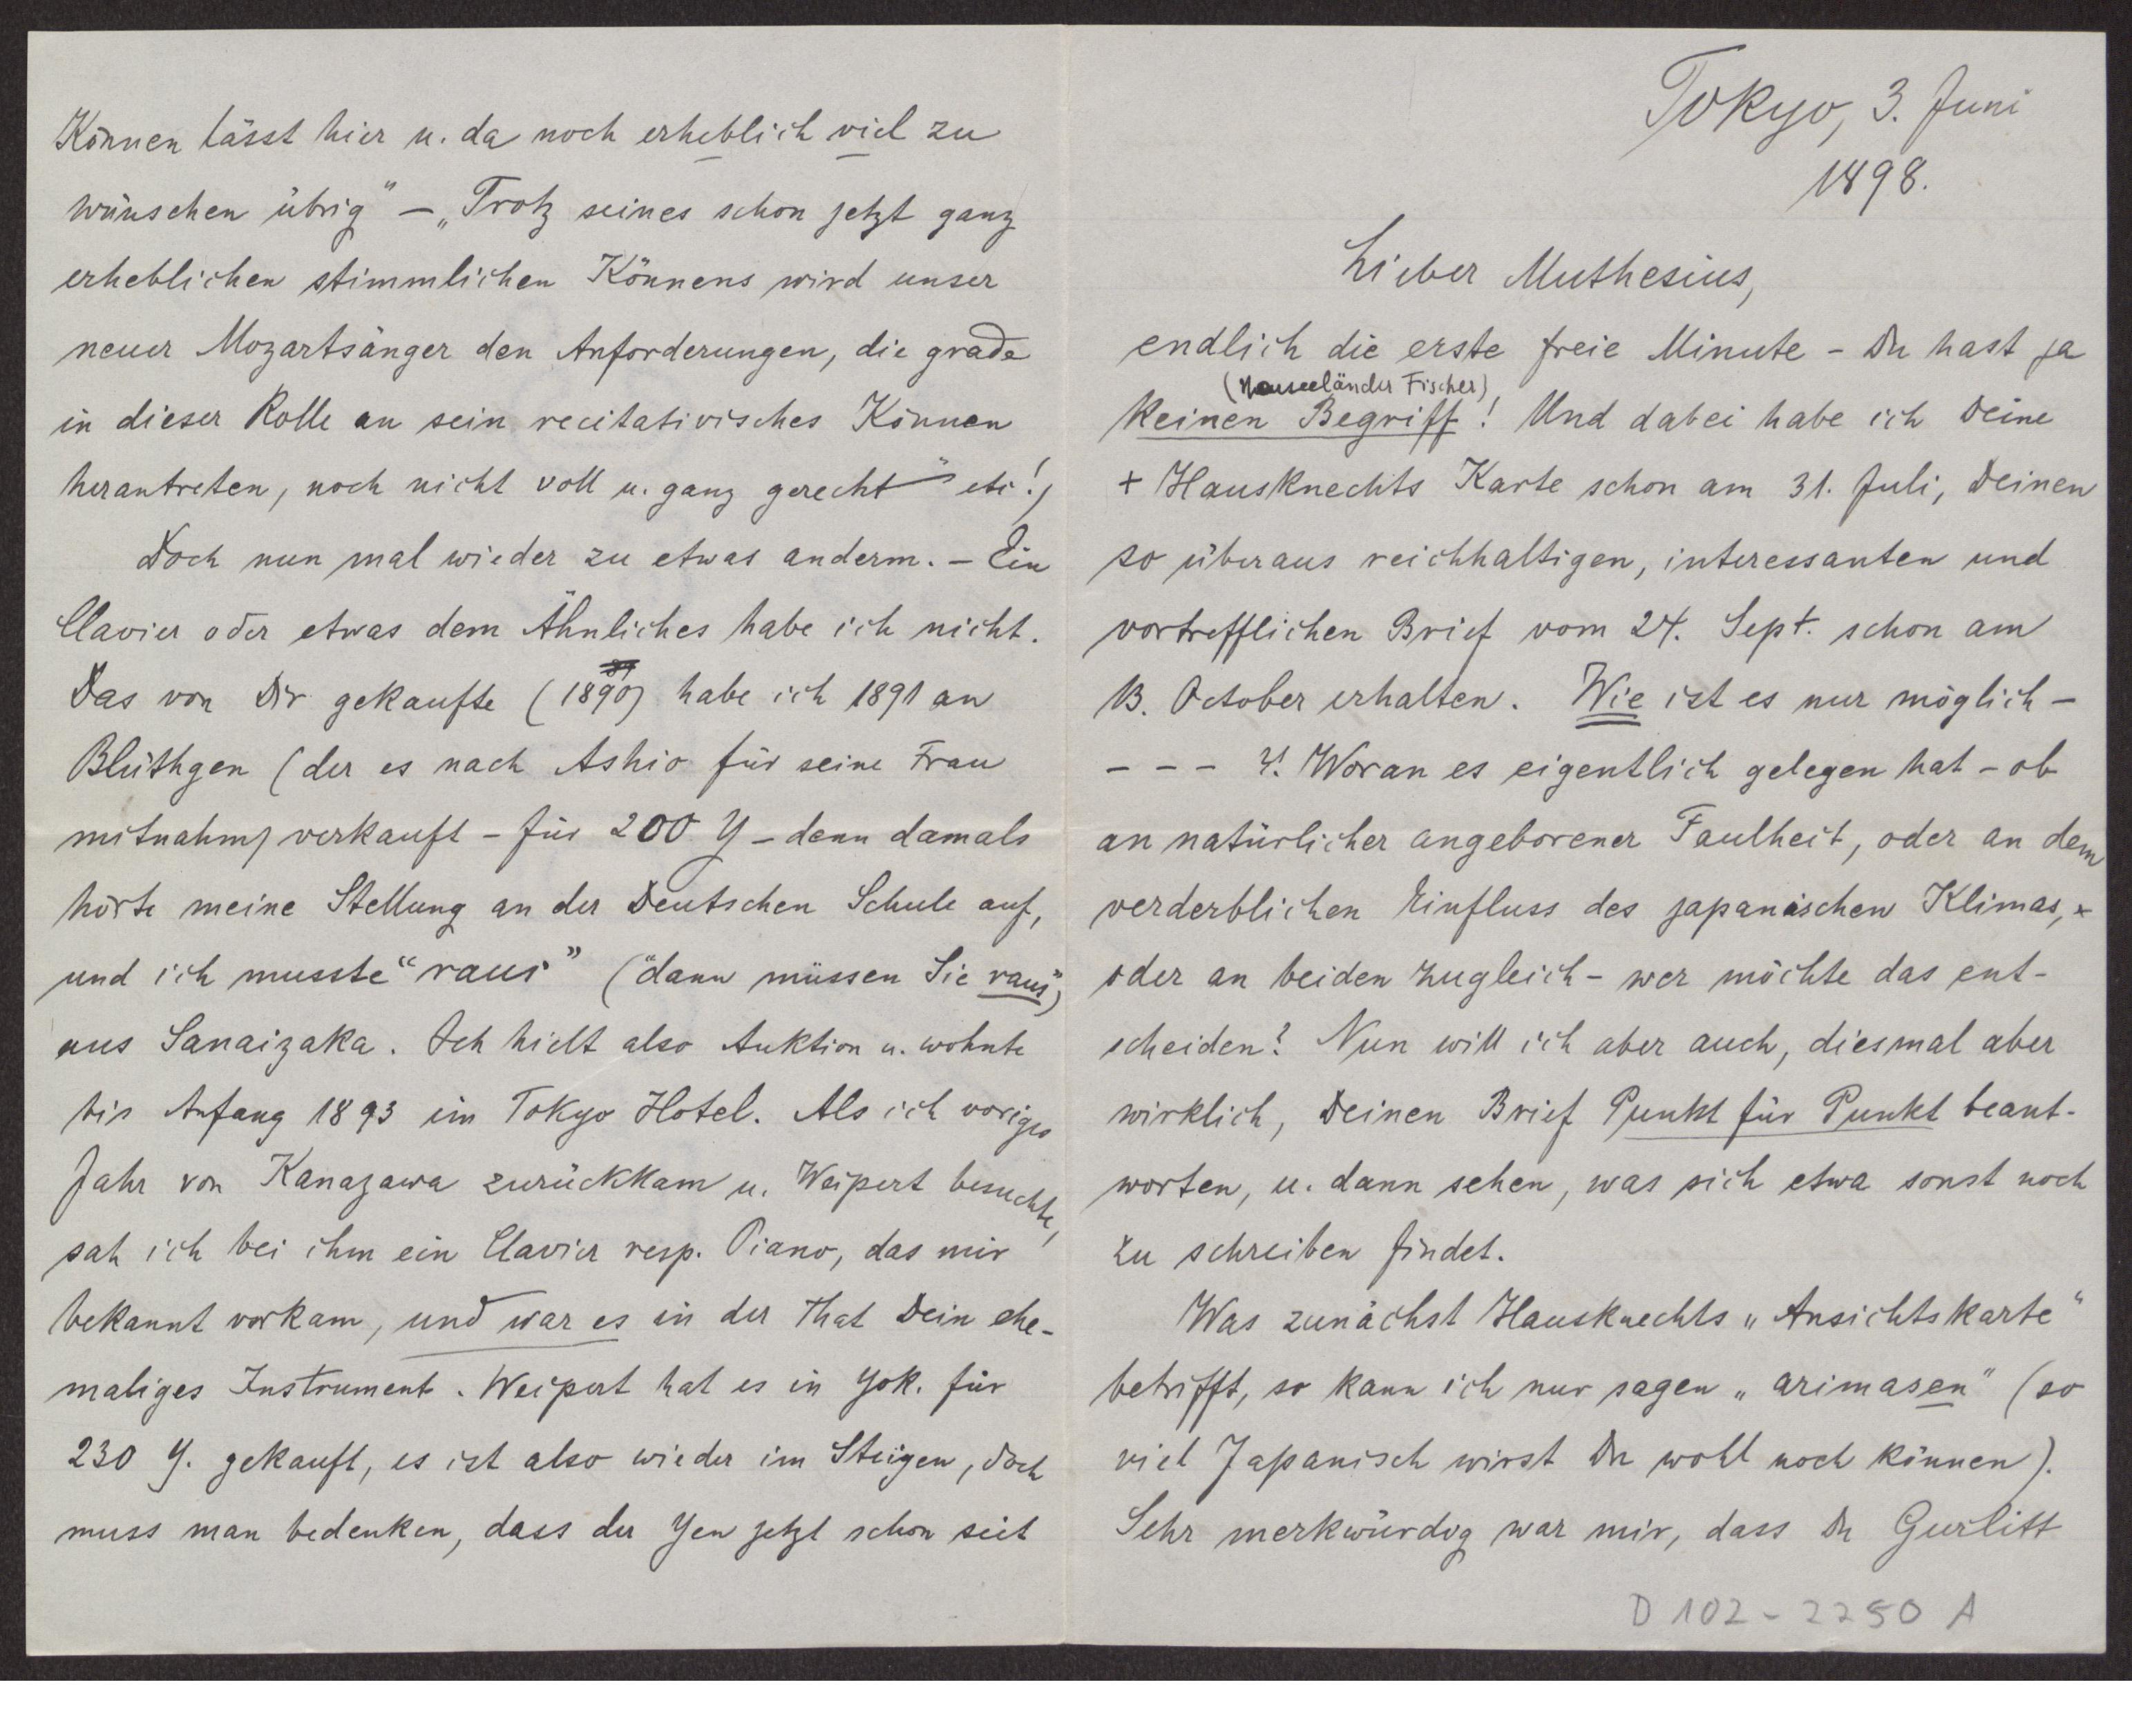 Tokyo, 3. Juni
1898.
Lieber Muthesius,
endlich die erste freie Minute - Du hast ja
(Neuseeländer Fischer)
keinen Begriff! Und dabei habe ich Deine
+ Hausknechts Karte schon am 31. Juli, Deinen
so überaus reichhaltigen, interessanten und
vortrefflichen Brief vom 24. Sept. schon am
13. October erhalten. Wie ist es nur möglich -
- - - ?! Woran es eigentlich gelegen hat - ob
an natürlicher angeborener Faulheit, oder an dem
verderblichen Einfluss des japanischen Klimas, +
oder an beiden zugleich - wer möchte das ent-
scheiden? Nun will ich aber auch, diesmal aber
wirklich, Deinen Brief Punkt für Punkt beant-
worten, u. dann sehen, was sich etwa sonst noch
zu schreiben findet.
Was zunächst Hausknechts „Ansichtskarte"
betrifft, so kann ich nur sagen „arimasen" (so
viel Japanisch wirst Du wohl noch können).
Sehr merkwürdig war mir, dass Du Gurlitt
D 102 - 2250 A
Können lässt hier u. da noch erheblich viel zu
wünschen übrig" - „Trotz seines schon jetzt ganz
erheblichen stimmlichen Könnens wird unser
neuer Mozartsänger den Anforderungen, die grade
in dieser Rolle an sein recitativisches Können
herantreten, noch nicht voll u. ganz gerecht" etc!)
Doch nun mal wieder zu etwas anderm. - Ein
Clavier oder etwas dem Ähnliches habe ich nicht.
Das von Dir gekaufte (1890) habe ich 1891 an
Blüthgen (der es nach Ashio für seine Frau
mitnahm) verkauft - für 200 Y - denn damals
hörte meine Stellung an der Deutschen Schule auf,
und ich musste "raus" ("dann müssen Sie raus")
aus Sanaizaka. Ich hielt also Auktion u. wohnte
bis Anfang 1893 im Tokyo Hotel. Als ich voriges
Jahr von Kanazawa zurückkam u. Weipert besuchte,
sah ich bei ihm ein Clavier resp. Piano, das mir
bekannt vorkam, und war es in der That Dein ehe-
maliges Instrument. Weipert hat es in Yok. für
230 Y. gekauft, es ist also wieder im Steigen, doch
muss man bedenken, dass der Yen jetzt schon seit